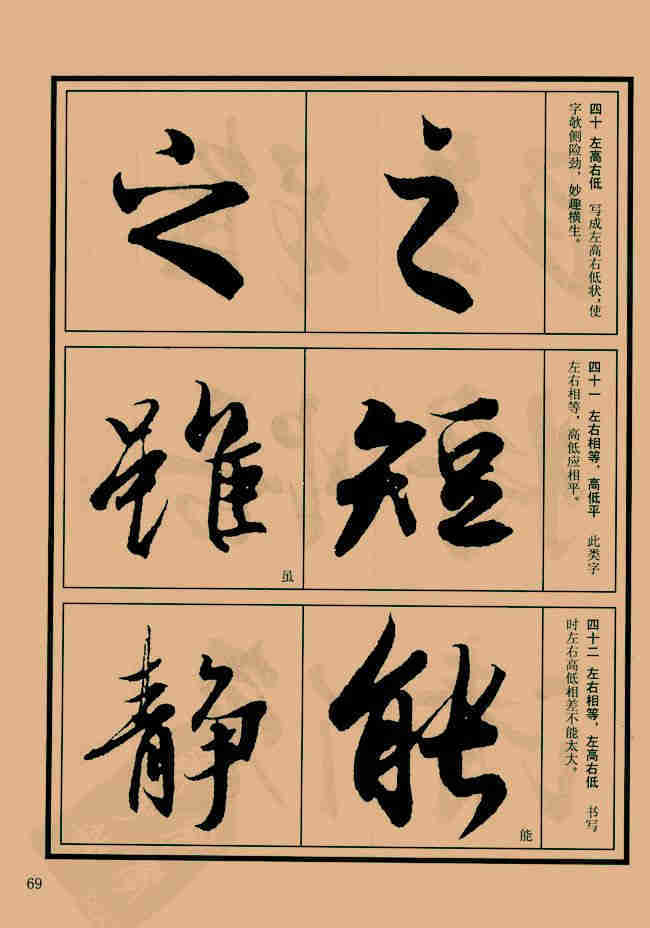 四十 左高右低 写成左高右低状，使
字欹侧险劲，妙趣横生。
之
之
四十一 左右相等，高低平 此类字
左右相等，高低应相平。
短
雖
虽
四十二 左右相等，左高右低 书写
时左右高低相差不能太大。
能
能
静
69